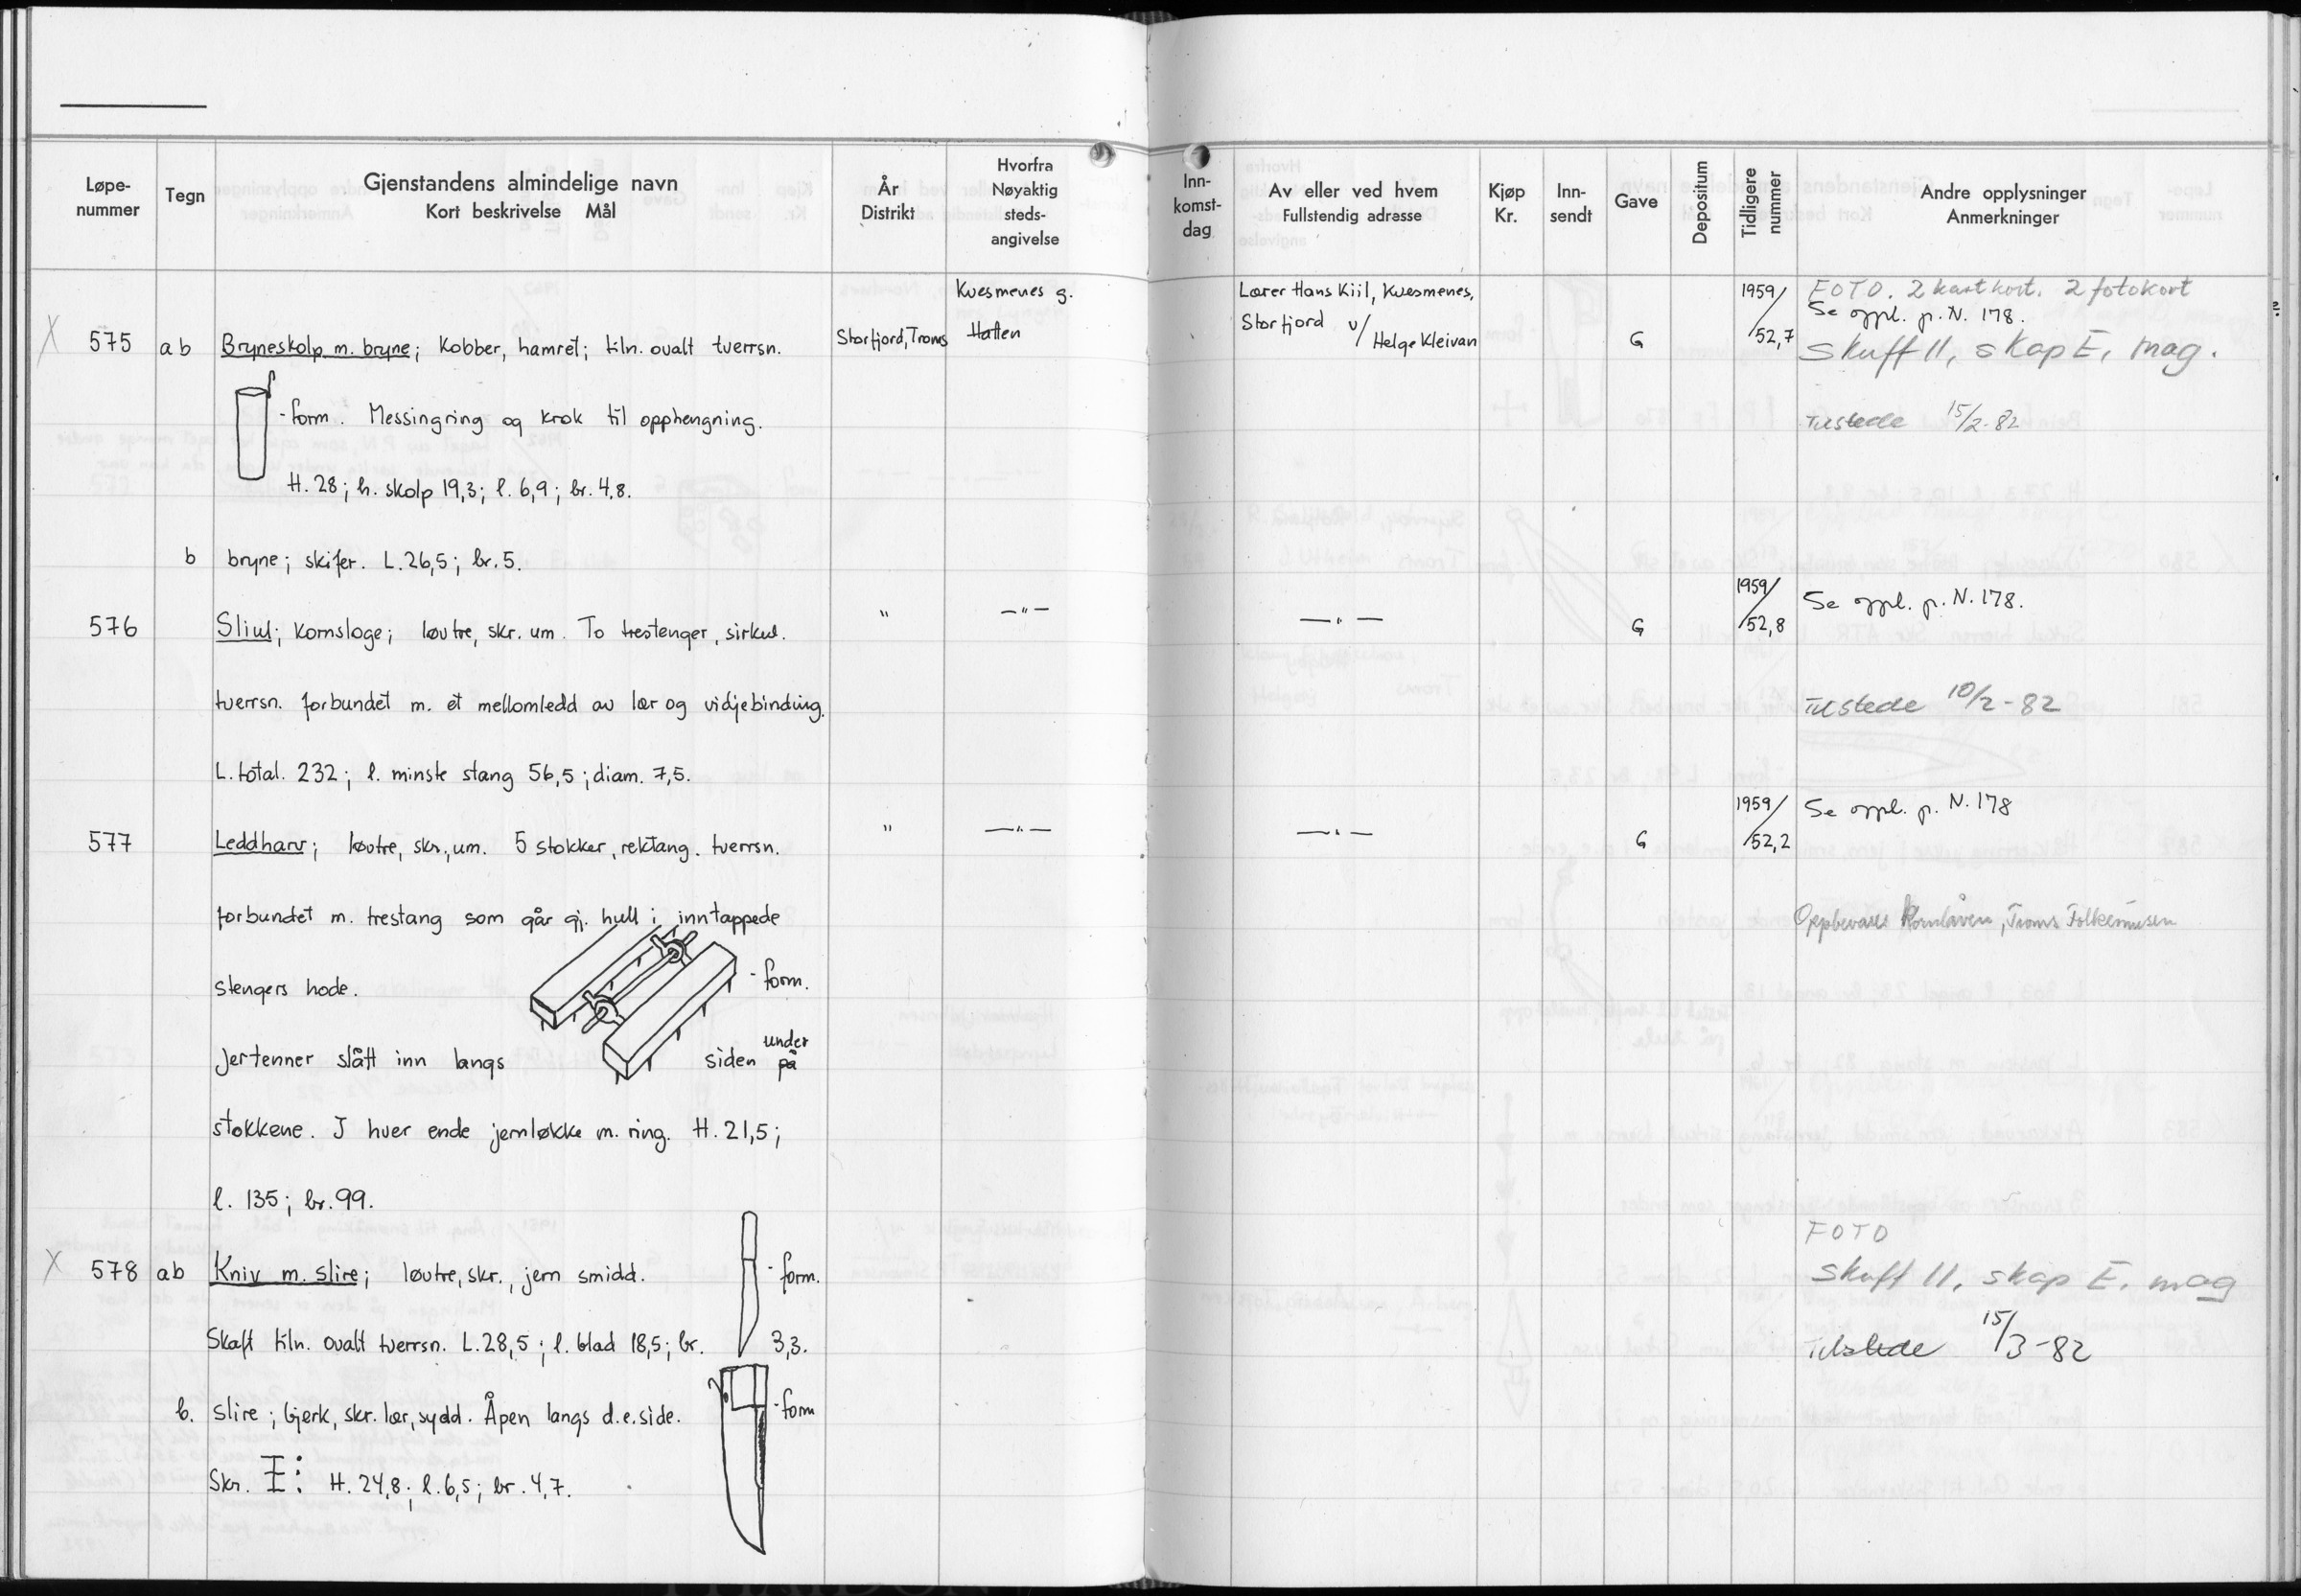 Løpe-
nummer
Tegn
Gjenstandens almindelige navn
Kort beskrivelse Mål
År
Distrikt
Hvorfra
Nøyaktig
steds-
angivelse
Inn-
komst-
dag
Av eller ved hvem
Fullstendig adresse
Kjøp
Kr.
Inn-
sendt
Gave
Depositum
Tidligere
nummer
Andre opplysninger
Anmerkninger
X 575 ab Bryneskolp m. bryne; kobber, hamret; tiln. ovalt tverrsn.
-form. Messingring og krok til opphengning.
H. 28; h. skolp 19,3; l. 6,9; br. 4,8.
Storfjord, Troms
Kvesmenes g.
Hatten
Lærer Hans Kiil, Kvesmenes,
Storfjord v/ Helge Kleivan
G
1959/
/52,7
FOTO. 2 kartkort. 2 fotokort
Se oppl. p. N. 178.
Skuff II, skap E, mag.
Tilstede 15/2-82
b bryne; skifer. L. 26,5; br. 5.
576 Sliul; kornsloge; løvtre, skr. um. To trestenger, sirkul.
tverrsn. forbundet m. et mellomledd av lær og vidjebinding.
L. total. 232; l. minste stang 56,5; diam. 7,5.
" —"— —"— G
1959/
/52,8
Se oppl. p. N. 178.
Tilstede 10/2-82
577 Leddharv; løvtre, skr., um. 5 stokker, rektang. tverrsn.
forbundet m. trestang som går gj. hull i inntappede
stengers hode. -form.
Jertenner slått inn langs siden på under
stokkene. I hver ende jernløkke m. ring. H. 21,5;
l. 135; br. 99.
" —"— —"— G
1959/
/52,2
Se oppl. p. N. 178
Oppbevares Kornlåven, Troms Folkemuseum
X 578 ab Kniv m. slire; løvtre, skr., jern smidd. -form.
Skaft tiln. ovalt tverrsn. L. 28,5; l. blad 18,5; br. 3,3.
b. slire; bjerk, skr. lær, sydd. Åpen langs d.e. side. -form
Skr. H. 24,8; l. 6,5; br. 4,7.
FOTO
Skuff II, skap E, mag
Tilstede 15/3-82